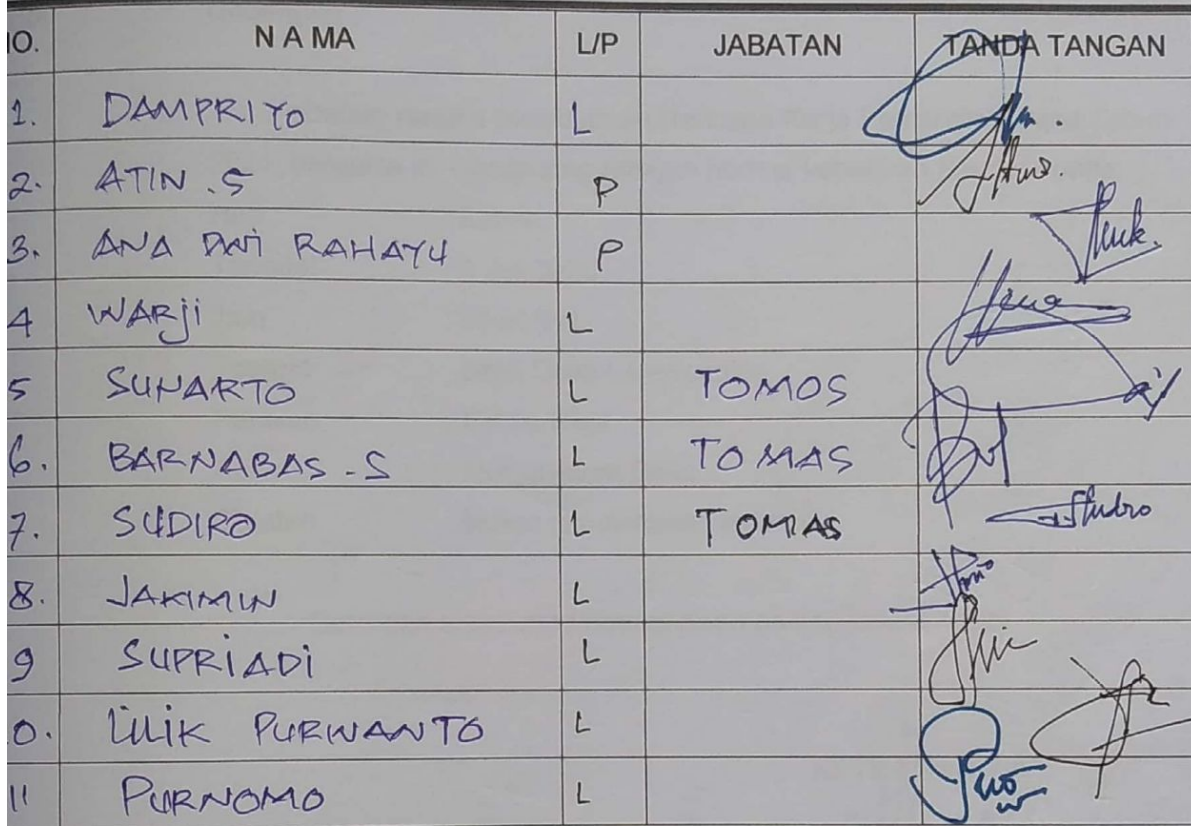 NO. N A M A L/P JABATAN TANDA TANGAN
1. DAMPRIYO L
2. ATIN .S P
3. ANA DWI RAHAYU P
4 WARJi L
5 SUNARTO L TOMOS
6. BARNABAS .S L TOMAS
7. SUDIRO L TOMAS
8. JAKIMIN L
9 SUPRiADi L
0. LiLiK PURWANTO L
11 PURNOMO L